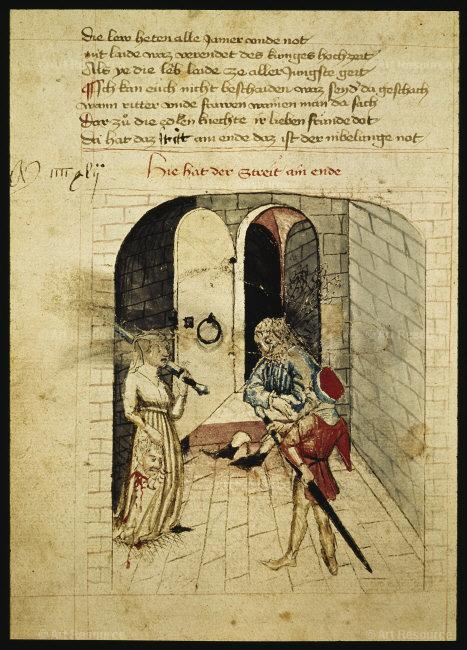 Die lew heten alle Jamer vnde not
mit laide waz verendet des kuniges hochzeit
Als ye die lieb laide ze aller Jungste geit
Ich kan euch nicht beschaiden waz seyd da geschach
wann ritter vnde frawen wainen man da sach
Dar zů die edlen knechte ir lieben frunde dot
Da hat daz ain ende daz ist der nibelunge not
Hie hat der Streit ain ende
© Art Resource © Art Resource